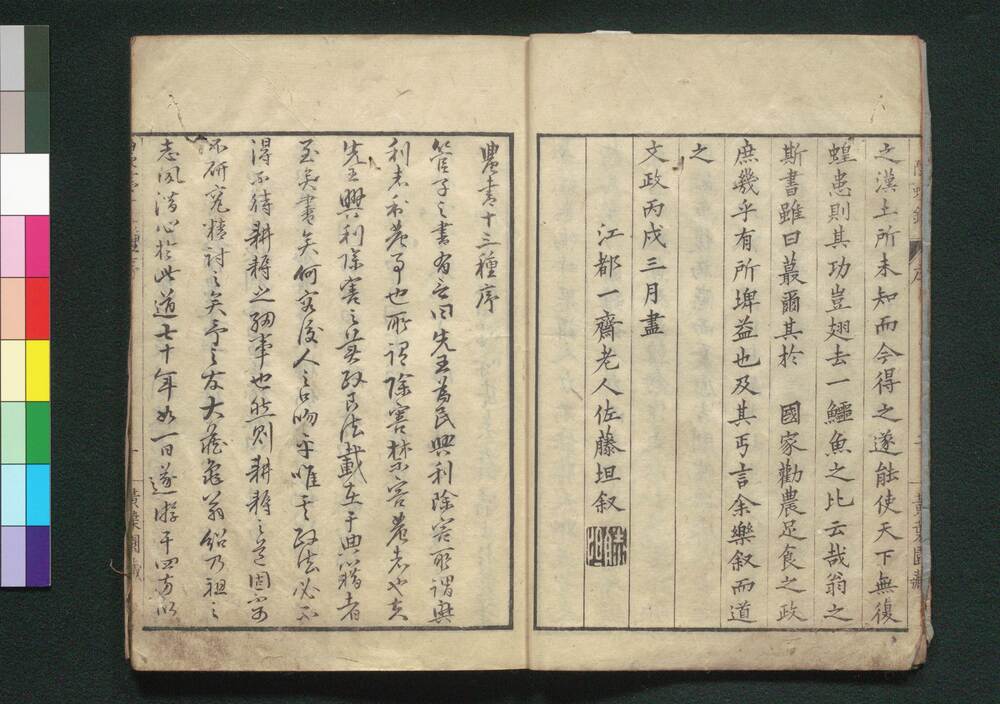 之漢土所未知而今得之遂能使天下無復
蝗患則其功豈翅去一鱷魚之比云哉翁之
斯書雖曰蕞爾其於　國家勸農足食之政
庶幾乎有所埤益也及其丐言余樂叙而道
之
文政丙戌三月盡
江都一齋老人佐藤坦叙
農書十三種序
管子之書有言曰先王為民興利除害所謂興
利者利農事也所謂除害禁害農者也夫
先王興利除害之政良法載在于典籍者
至矣盡矣何容後人之口吻乎唯其政法必不
得不待耕耨之細事也然則耕耨之道固
不研究精討之矣予之友大藏龜翁紹乃祖之
志風潛心於此道七十年如一日遂游于四方以